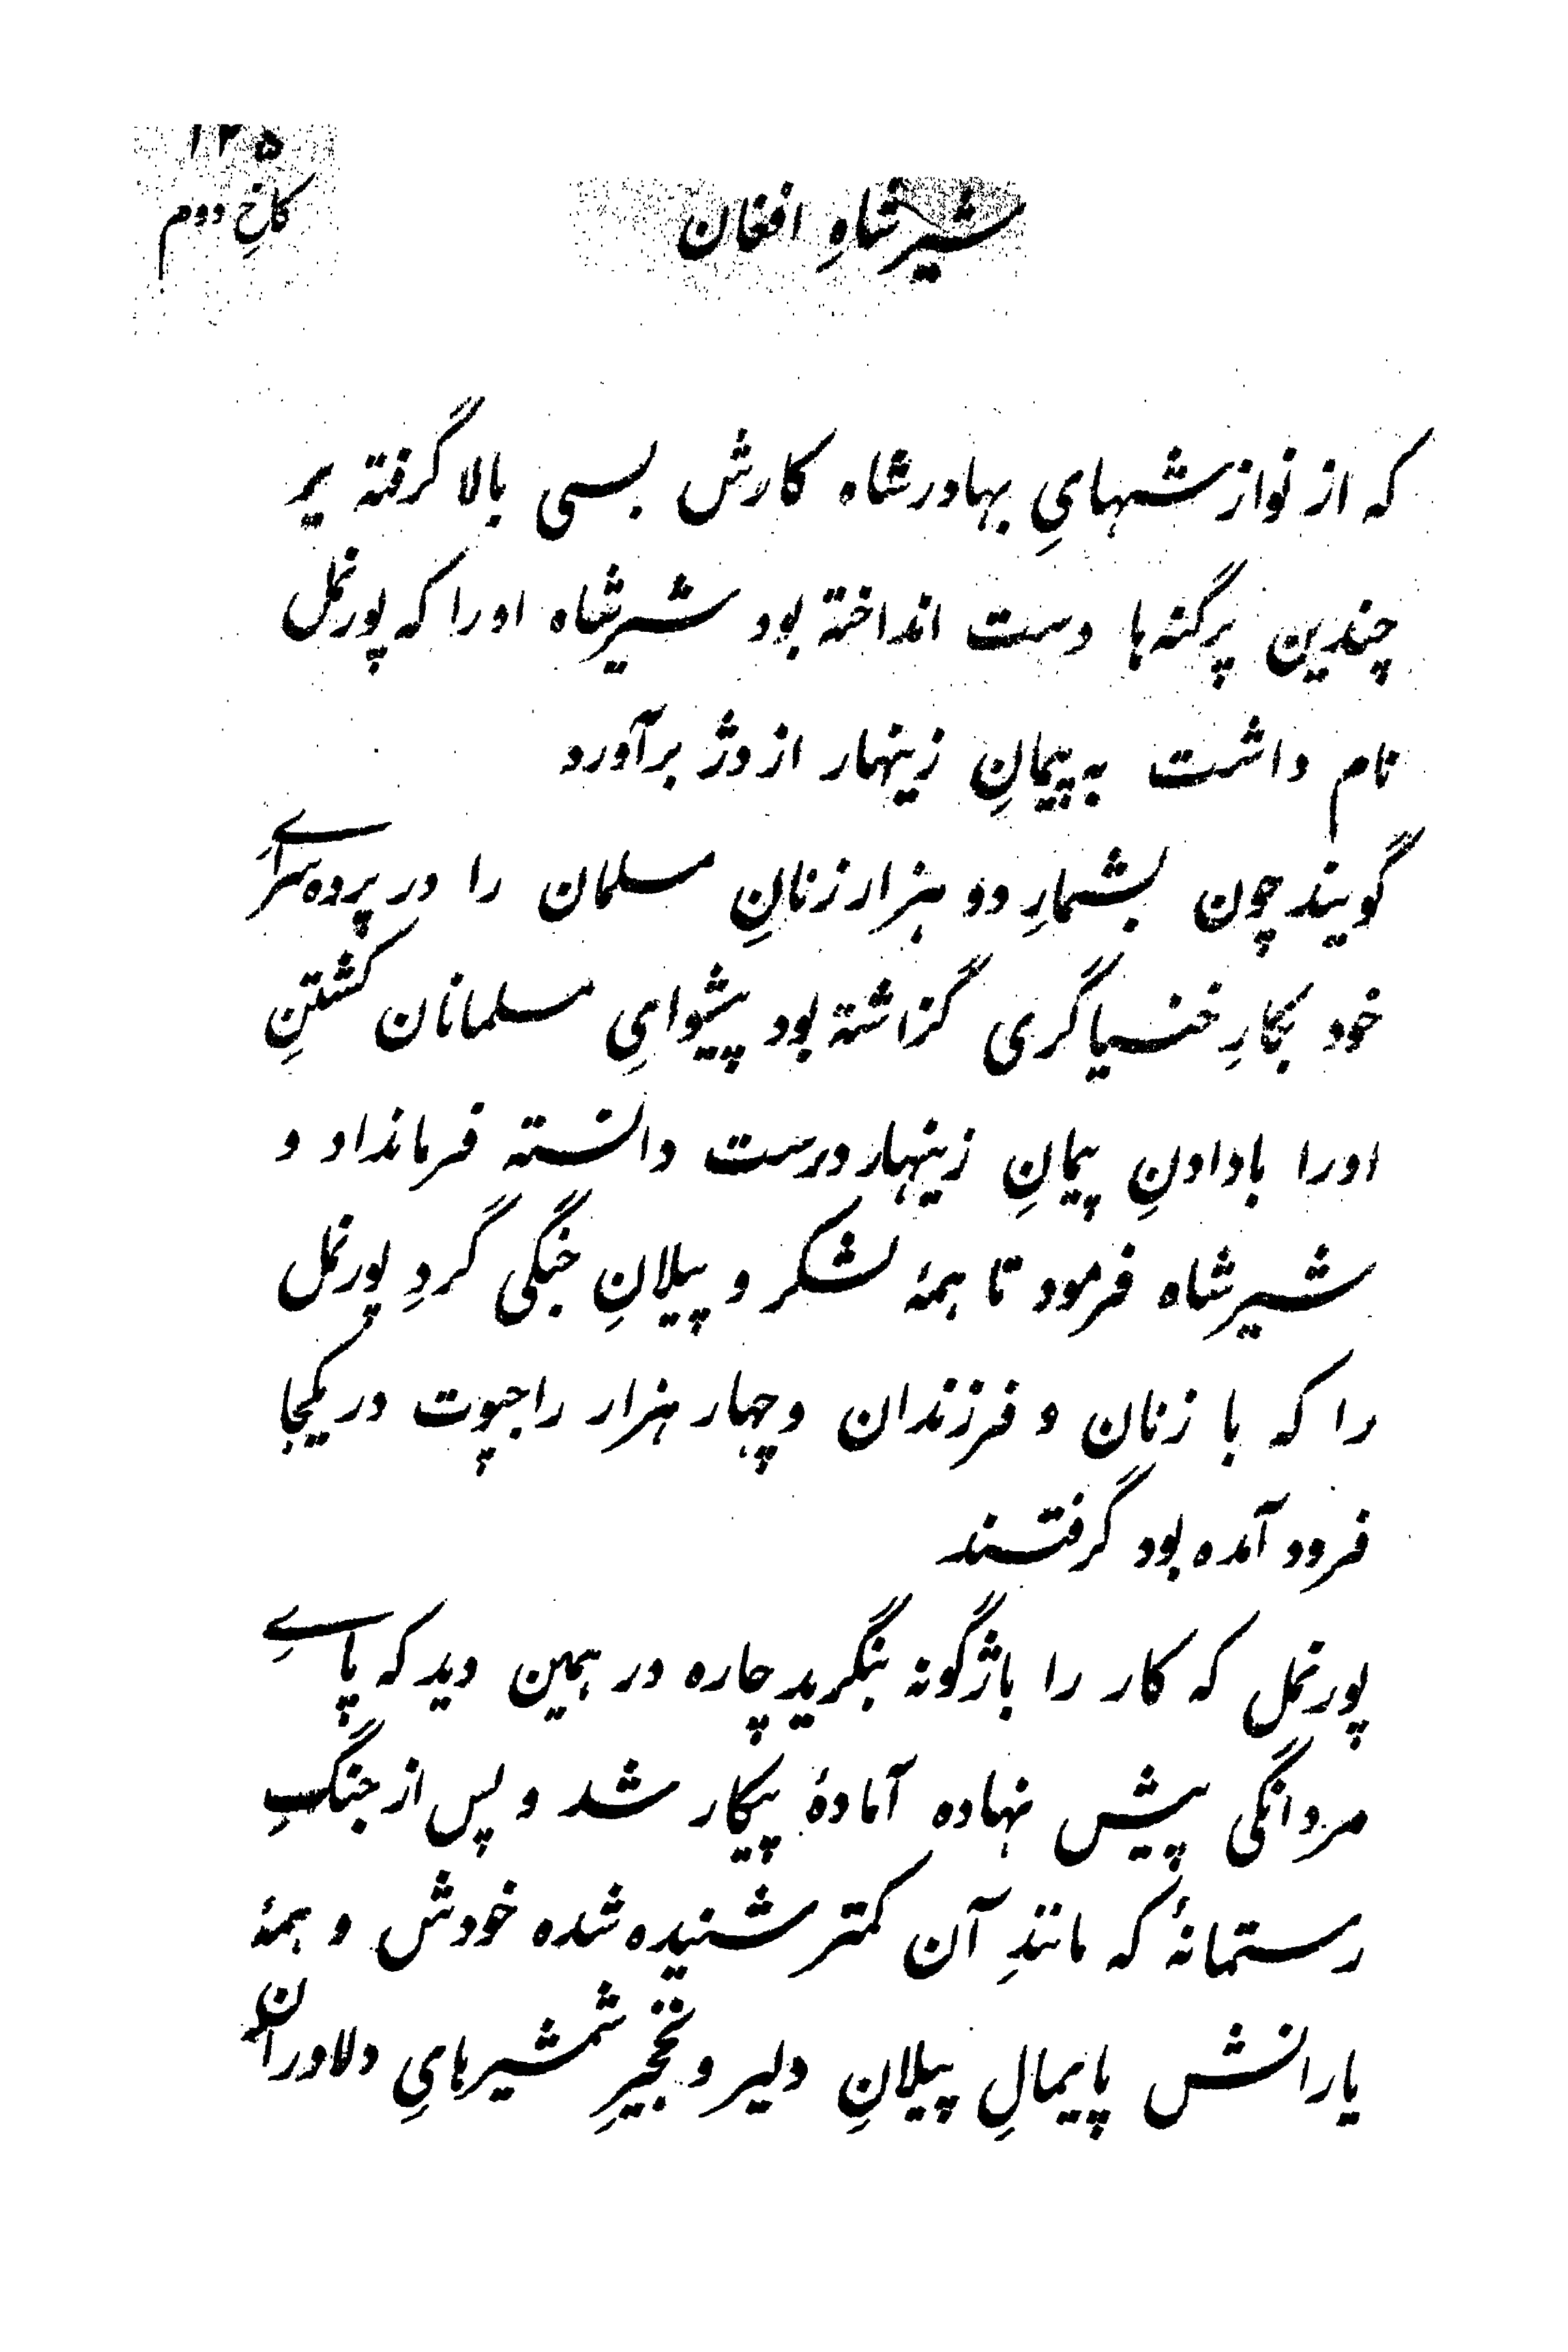 ۱۲۵
کاخِ دوم
شیرشاهِ افغان
که از نوازشهایِ بهادرشاه کارش بسی بالا گرفته بر
چندین پرگنه‌ها دست انداخته بود شیرشاه اورا که پورنمل
نام داشت به پیمانِ زینهار از دژ برآورد
گویند چون بشمارِ دو هزار زنانِ مسلمان را در پرده سراےِ
خود بکارِ خنیاگری گزاشته بود پیشوایِ مسلمانان کشتنِ
اورا بادادنِ پیمانِ زینهار درست دانسته فرمانداد و
شیرشاه فرمود تا همهٔ لشکر و پیلانِ جنگی گردِ پورنمل
را که با زنان و فرزندان و چهار هزار راجپوت در یکجا
فرود آمده بود گرفتند
پورنمل که کار را باژگونه بنگرید چاره در همین دید که پاےِ
مردانگی پیش نهاده آمادهٔ پیکار شد و پس از جنگِ
رستمانهٔ که مانندِ آن کمتر شنیده شده خودش و همهٔ
یارانش پایمالِ پیلانِ دلیر و نخجیرِ شمشیرهایِ دلاوران